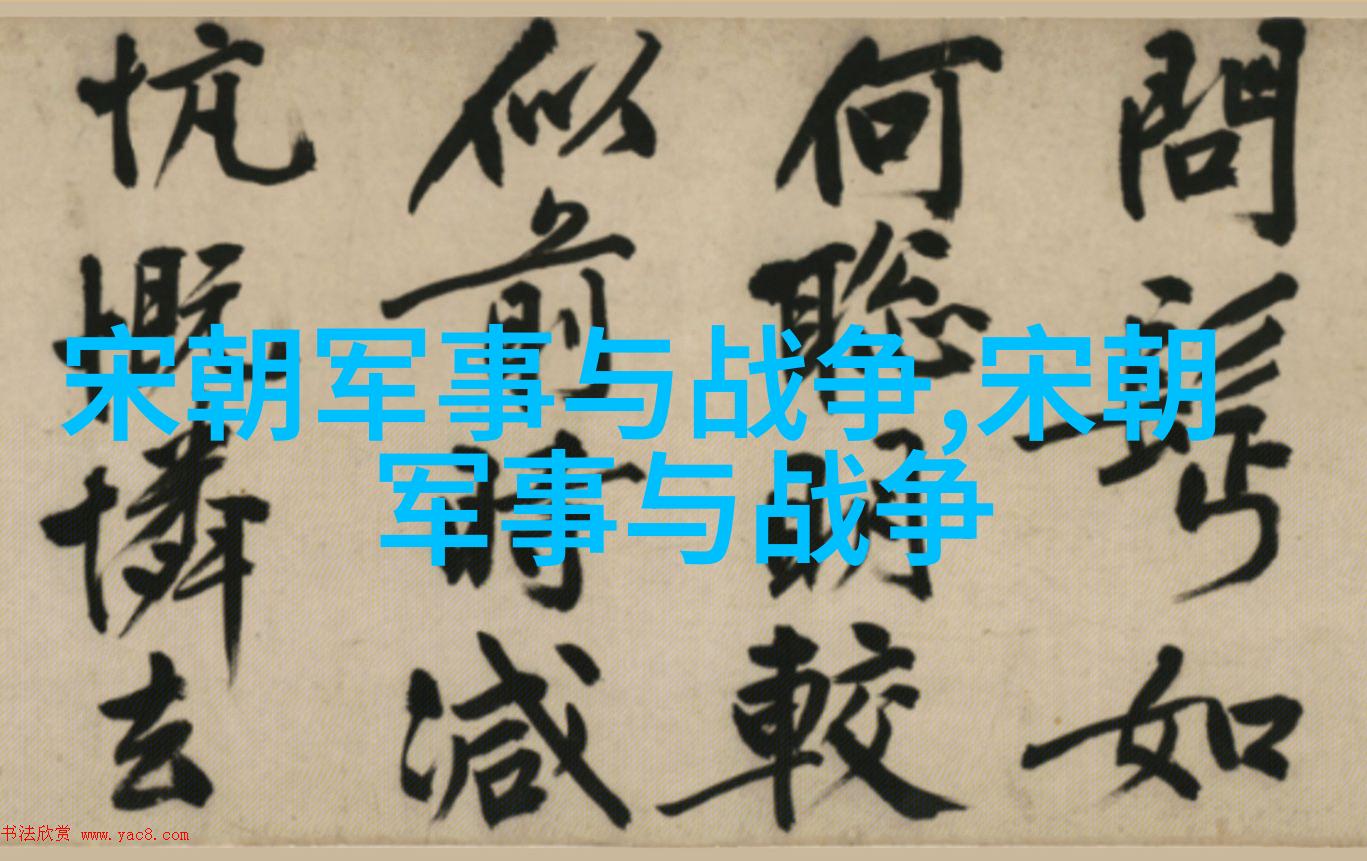 宋朝军事与战争,宋朝
军事与战争
問如
何聰明較
似前時減
忼慨憐去
书法欣赏 www.yac8.com